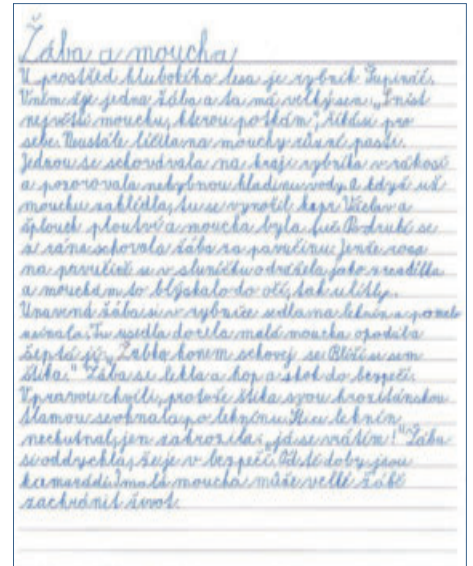 Žába a moucha
U prostřed hlubokého lesa je rybník Šupináč.
Vněm žije jedna žába a ta má velký sen. „Sníst
největší mouchu, kterou potkám", říkási pro
sebe. Neustále líčila na mouchy různé pasti.
Jednou se schovávala na kraji rybníka v rákosí
a pozorovala nehybnou hladinu vody. A když už
mouchu zahlédla, tu se vynořil kapr Václav a
šplouch ploutví a moucha byla fuč. Podruhé se
z rána schovala žába za pavučinu. Jenže rosa
na se v sluníčku odrážela jako zrcadílka
a mouchám to blýskalo do očí, tak ulítly.
Unavená žába si v rybníce sedla na leknín a
Tu usedla docela malá moucha opodál a
šeptá jí: Žabko honem schovej se. Blíží se sem
štika." Žába se lekla a hop a skok do bezpečí.
V pravou chvíli, protože štika svou krozitánskou
tlamou se ohnala po leknínu. leknín
nechutnal, jen zahrozila: „já se vrátím!" Žába
si oddychla, že je v bezpečí. Od té doby jsou
kamarádi. I malá moucha může velké žábě
zachránit život.